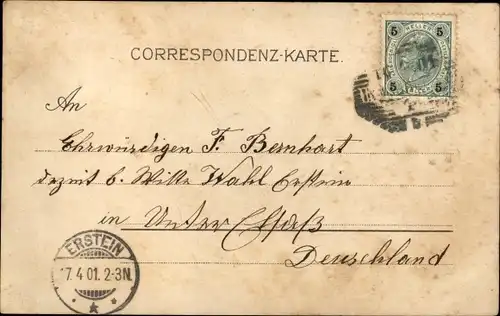 5 HELLER 5
5 5
CORRESPONDENZ-KARTE.
An
Ehrwürdigen F. Bernhart
derzeit b. Witte Wahl Erstein
in Unter Elsaß
Deuschland
ERSTEIN
7.4.01. 2-3N.